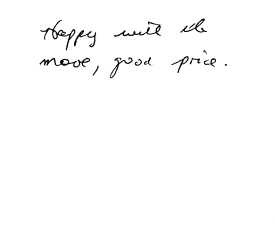 Happy with the
move, good price.